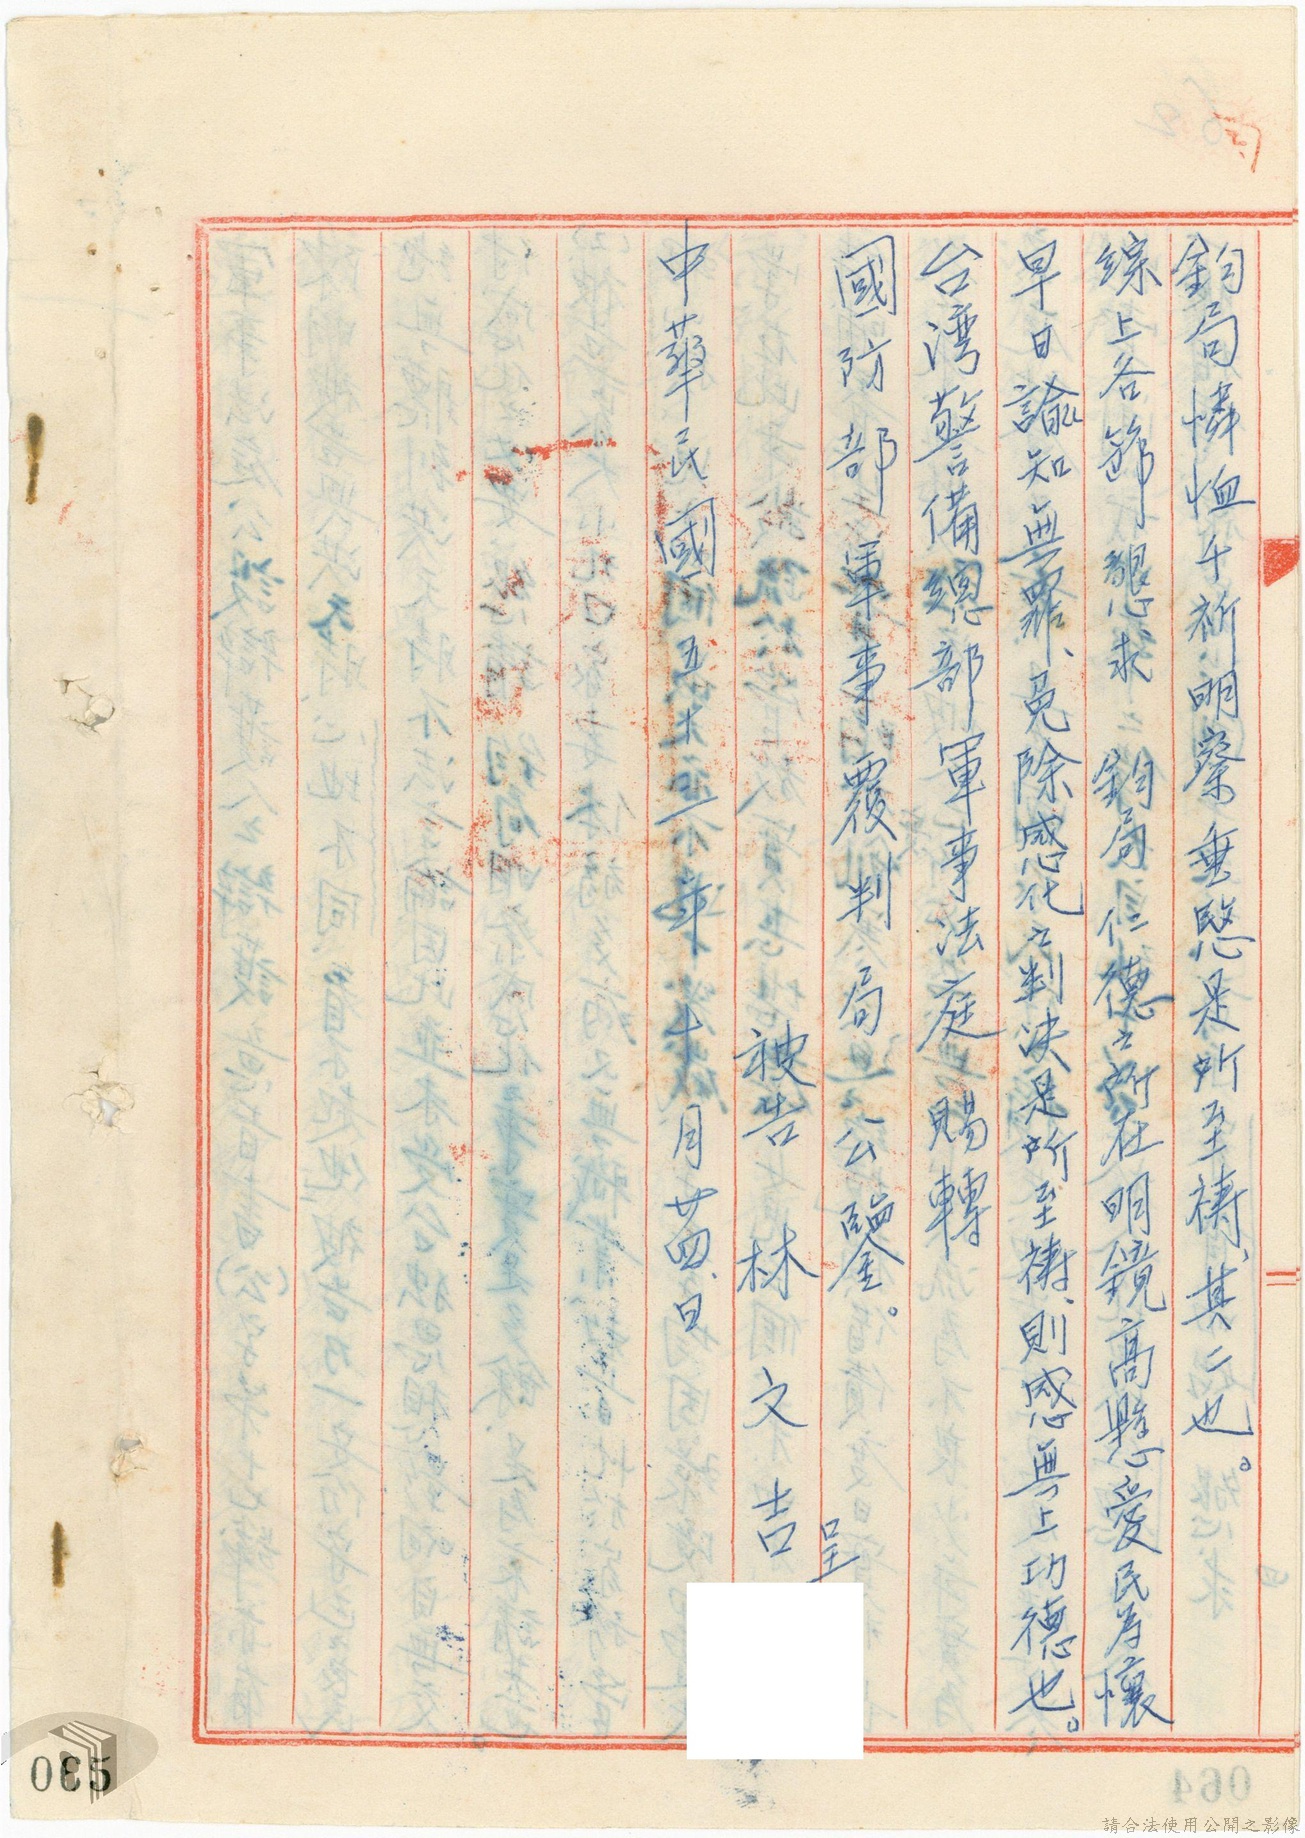 鈞局憐恤千祈明察垂愍是所至禱、其二也。
綜上各節懇求 鈞局仁德之所在明鏡高懸愛民為懷
早日諭知無罪、免除感化之判決是所至禱、則感無上功德也。
台湾警備總部軍事法庭 賜轉
國防部軍事覆判局 公鑒。
被告 林文吉 呈
中華民國五十四年十月廿四、日
065
064
請合法使用公開之影像